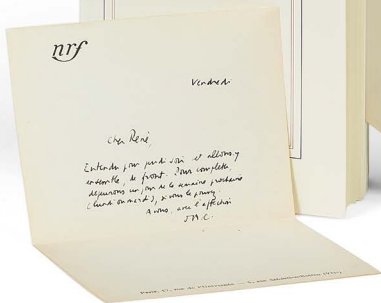 nrf
Vendredi
Cher René,
Entendu pour jeudi soir et allons-y
ensemble, de front. Pour compléter,
déjeunons un jour de la semaine prochaine
(lundi ou mardi), si vous le pouvez.
À vous, avec l'affection
Paris, 5, rue de